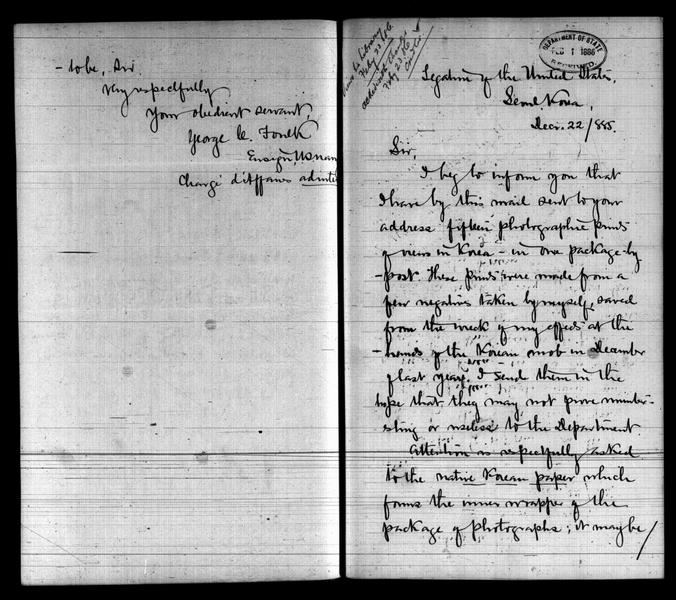 - to be, Sir
Very respectfully
Your obedient servant,
George C. Foulk
Ensign, USNavy
Chargé d'Affaires
Feby 23/86
Feby 23/86
DEPARTMENT OF STATE
FEB 1 1886
RECEIVED
Legation of the United States,
Seoul, Korea,
Decr. 22/885.
Sir,
I beg to inform you that
I have by this mail sent to your
address fifteen photographic prints
of views in Korea - in one package by
- post. These prints were made from a
few negatives taken by myself, saved
from the wreck of my effects at the
- hands of the Korean mob in December
of last year. I send them in the
hope that they may not prove uninter-
esting or useless to the Department
Attention is respectfully asked
to the native Korean paper which
forms the inner wrapper of the
package of photographs; it may be